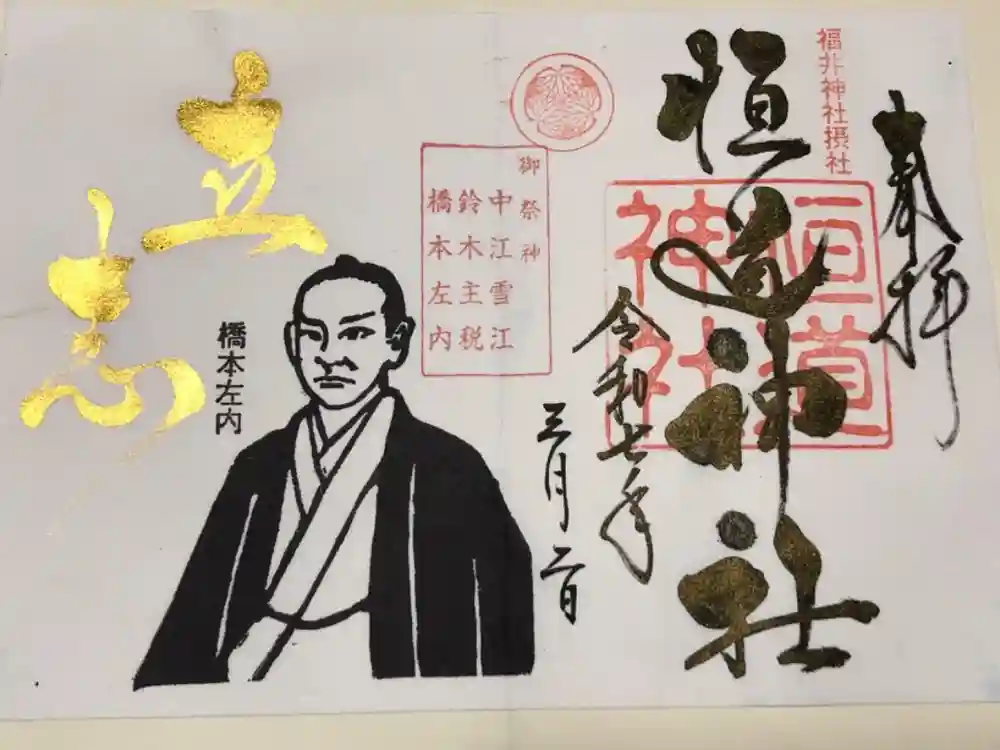 奉拝
福井神社摂社
恒道神社
恒道
神社
令和七年
三月二日
御祭神
中江雪江
鈴木主税
橋本左内
橋本左内
立志